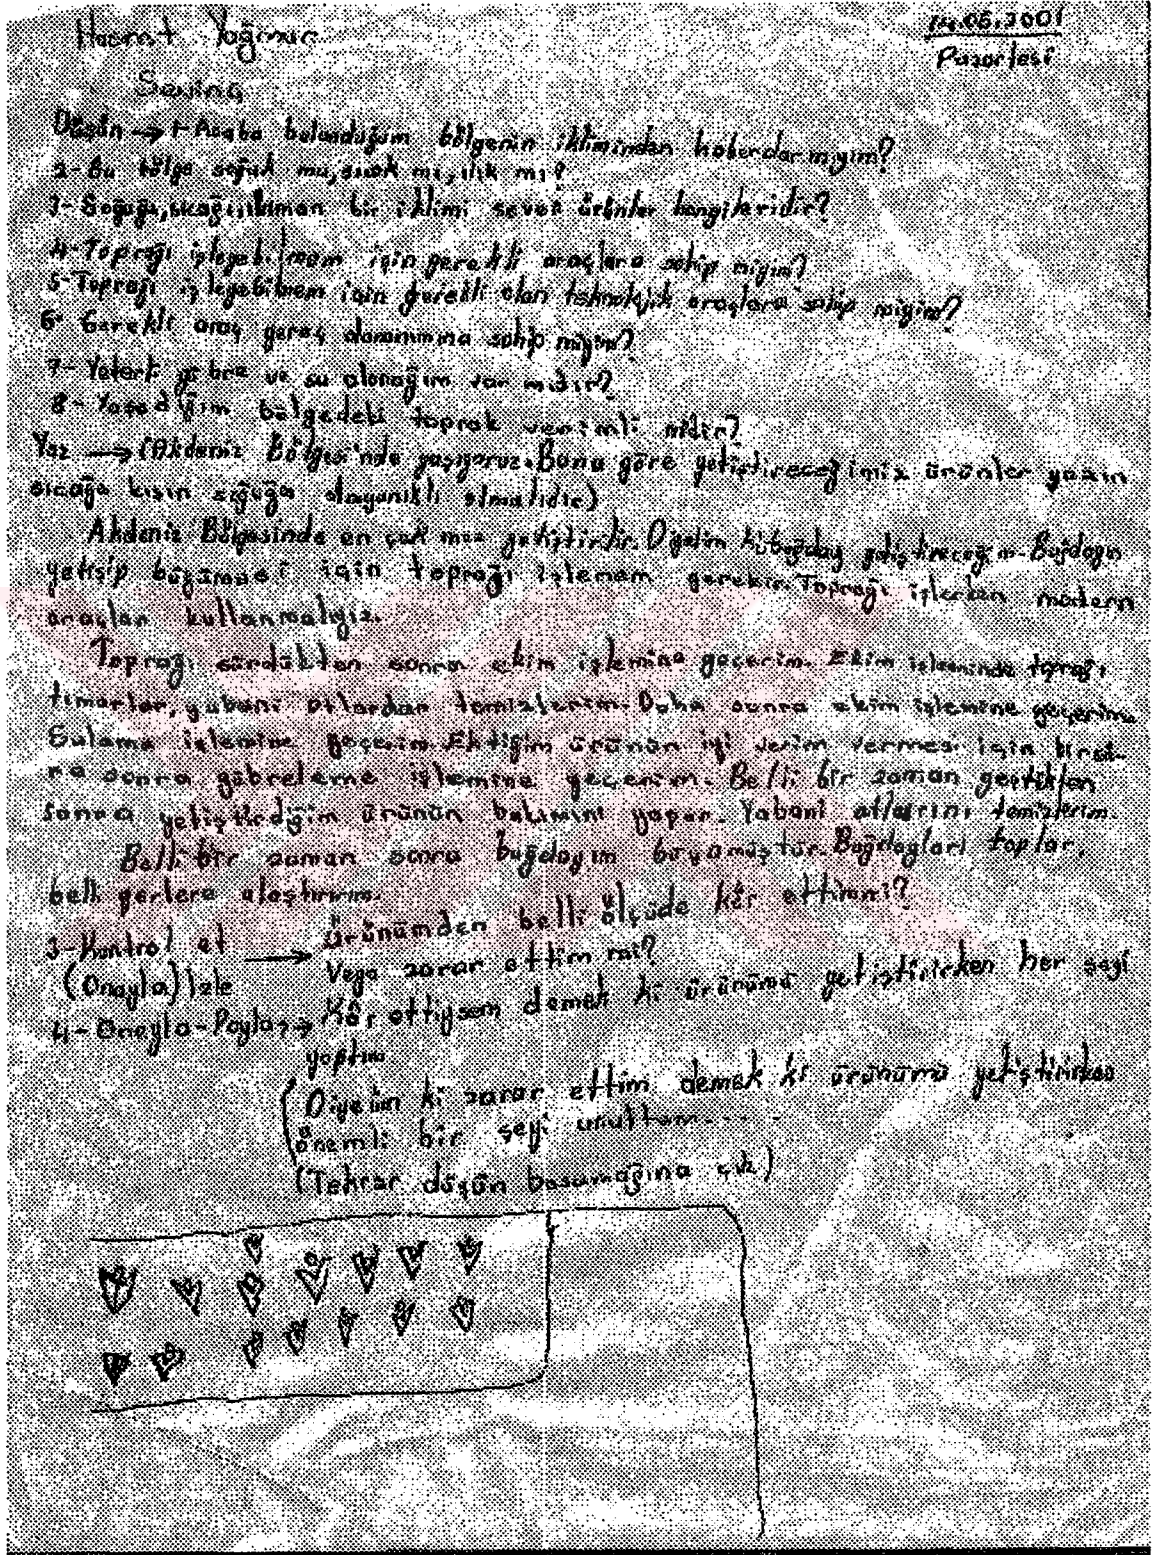 14.05.2001
Pazartesi
Yağmur
Düşün → 1-Acaba bulunduğum bölgenin ikliminden haberdar mıyım?
2-Bu bölge soğuk mu, sıcak mı, ılık mı?
3-Soğuğu, sıcağı, ılıman bir iklimi seven ürünler hangileridir?
4-Toprağı işleyebilmem için gerekli araçlara sahip miyim?
5-Toprağı işleyebilmem için gerekli olan teknolojik araçlara sahip miyim?
6- Gerekli araç gereç donanımına sahip miyim?
7-Yeterli gübre ve su olanağım var mıdır?
8-Yaşadığım bölgedeki toprak verimli midir?
Yaz → (Akdeniz Bölgesi'nde yaşıyoruz. Buna göre yetiştireceğimiz ürünler yazın
sıcağa kışın soğuğa dayanıklı olmalıdır)
Akdeniz Bölgesinde en çok yetiştirilir. Diyelim ki buğday yetiştireceğim. Buğdayın
yetişip büyümesi için toprağı işlemem gerekir. Toprağı işlerken modern
araçları kullanmalıyız.
Toprağı sürdükten sonra ekim işlemine geçerim. Ekim işleminde toprağı
tımarlar, yabani otlardan temizlerim. Daha sonra ekim işlemine geçerim.
Sulama işlemine geçerim. Ektiğim ürünün iyi verim vermesi için biraz
sonra gübreleme işlemine geçerim. Belli bir zaman geçtikten
sonra yetiştirdiğim ürünün bakımını yapar. Yabani otlarını temizlerim.
Belli bir zaman sonra buğdayım büyümüştür. Buğdayları toplar,
belli yerlere ulaştırırım.
3-Kontrol et → Ürünümden belli ölçüde kâr ettim mi?
(Onayla) İzle Veya zarar ettim mi?
4-Onayla-Paylaş → Kâr ettiysem demek ki ürünümü yetiştirirken her şeyi
yaptım
(Diyelim ki zarar ettim demek ki ürünümü yetiştirirken
önemli bir şeyi unuttum....
(Tekrar düşün basamağına çık)